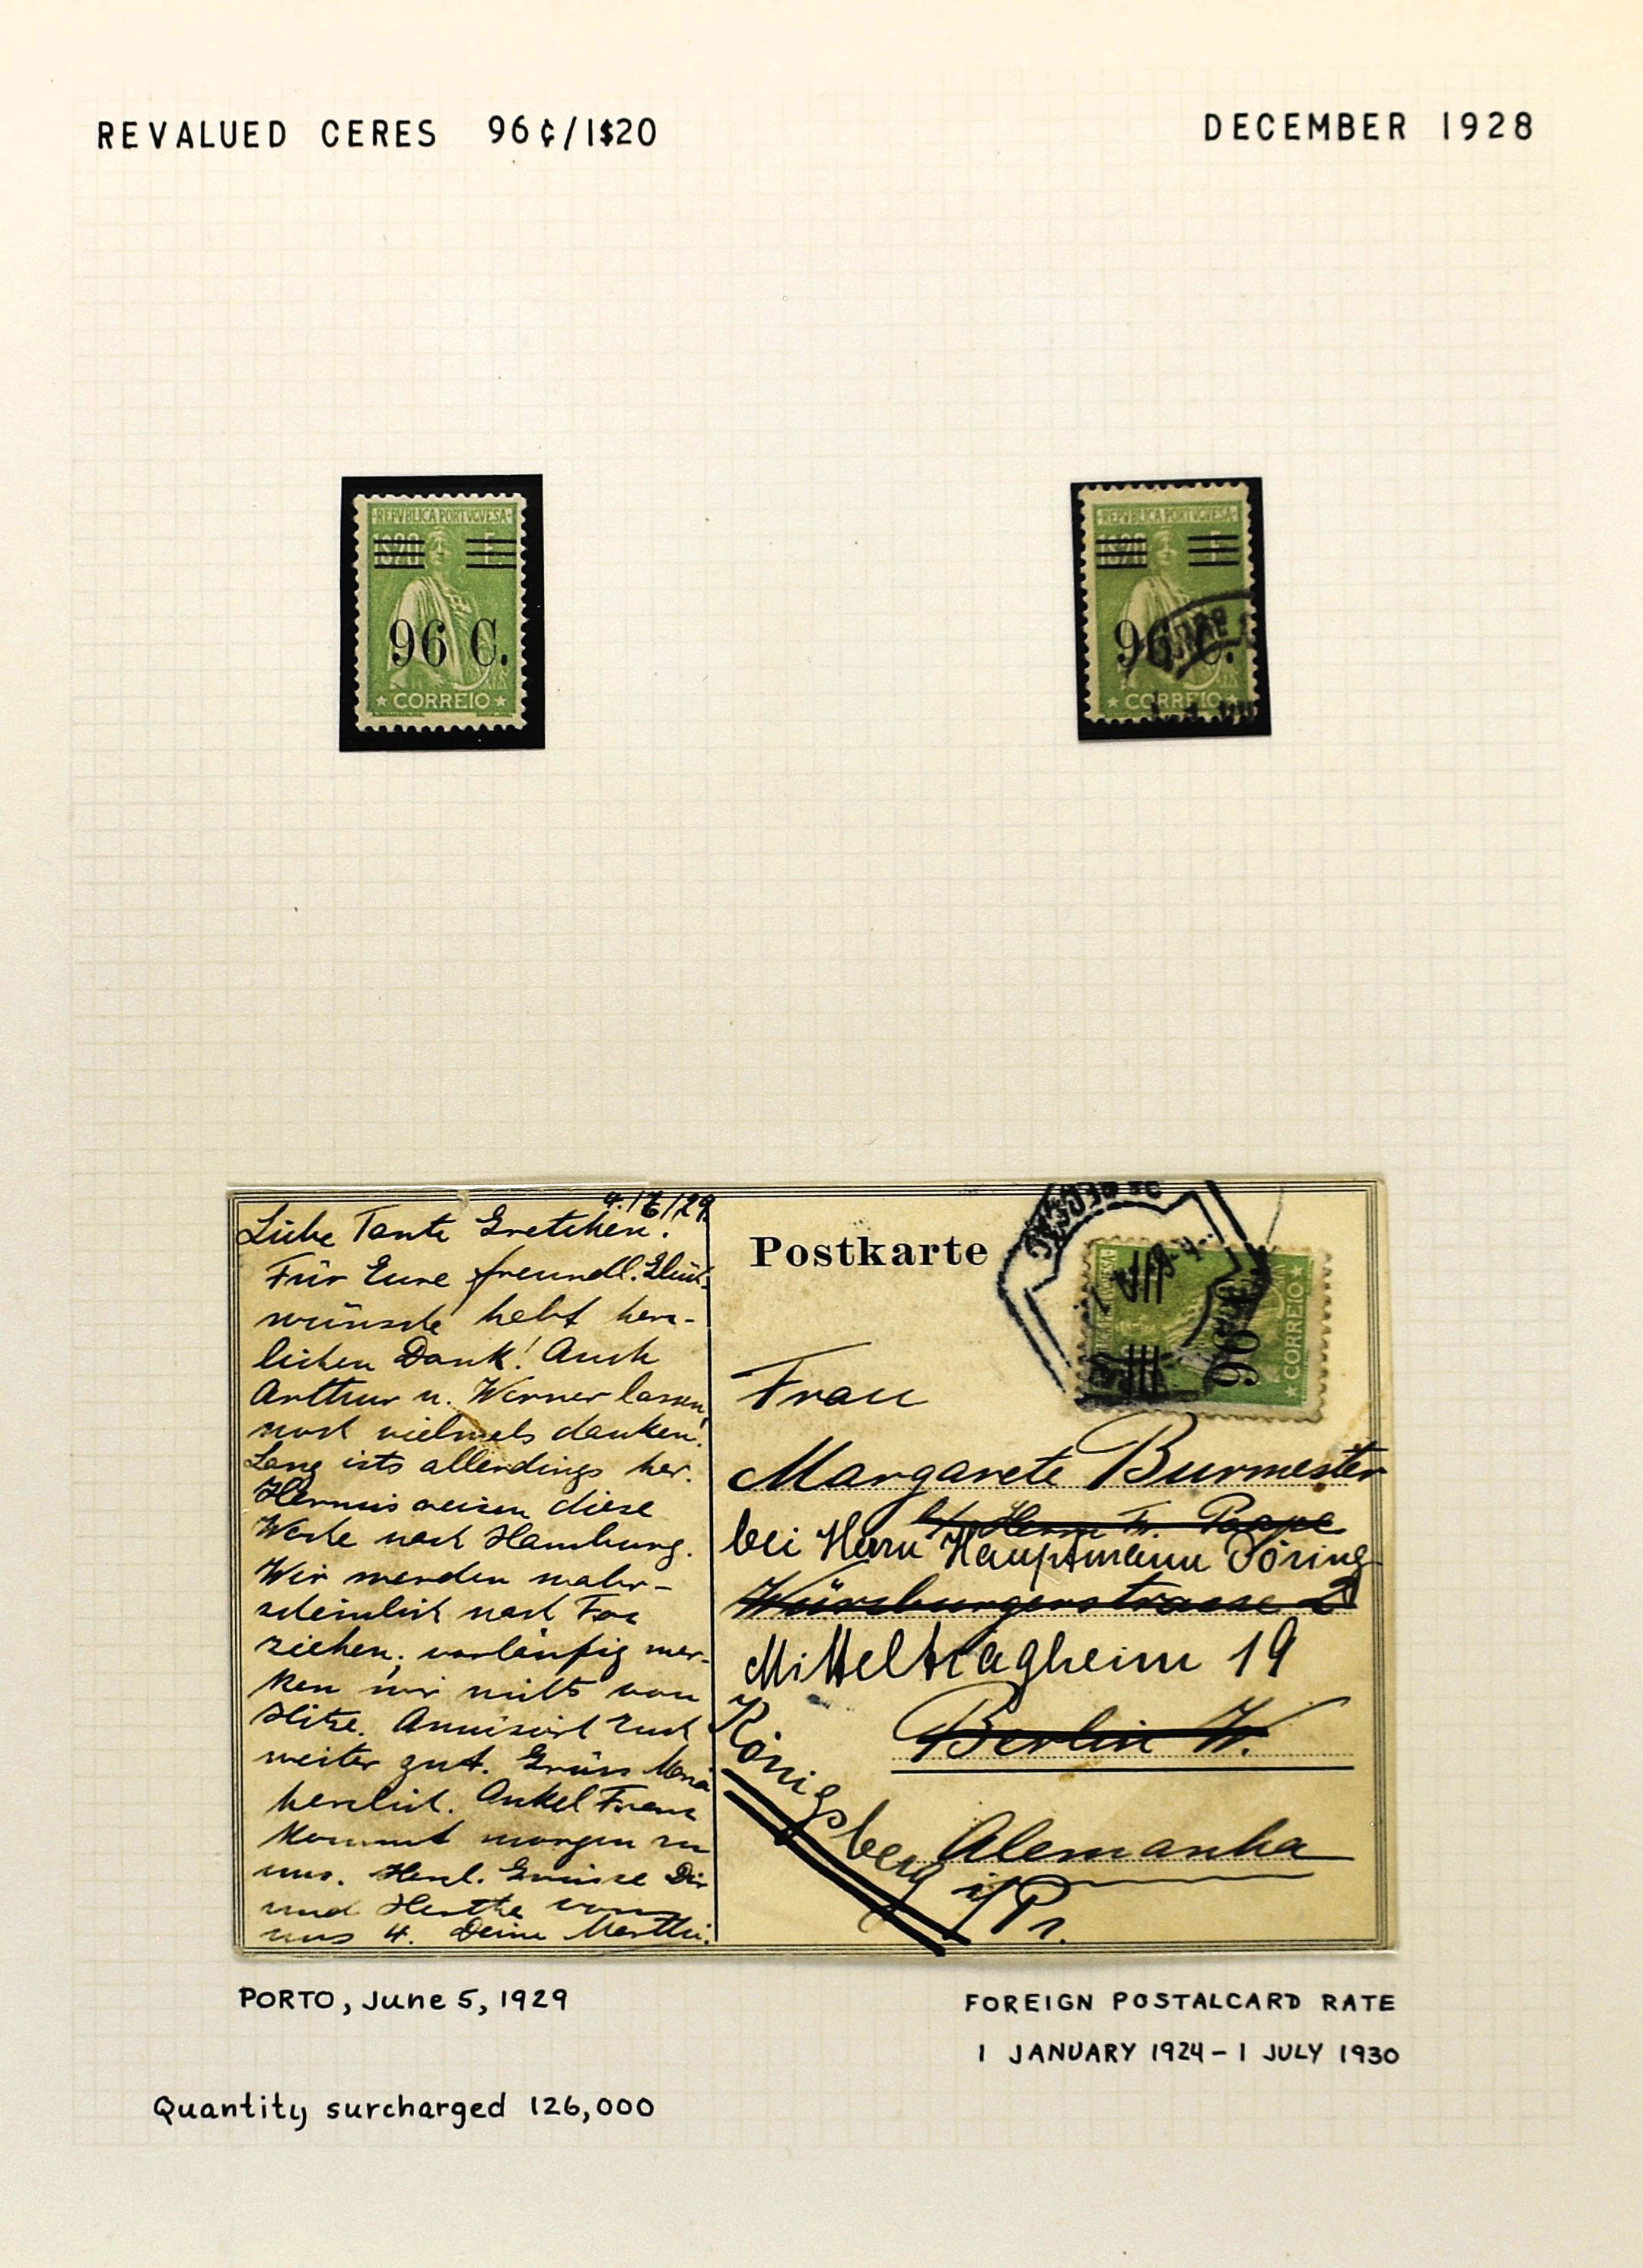 REVALUED CERES 96¢/1$20
DECEMBER 1928
REPVBLICA PORTVGVESA
1$20 E.
96 C.
CORREIO
REPVBLICA PORTVGVESA
96 C.
CORREIO
4./6/29
Liebe Tante Gretchen.
Für Eure freundl. Glück-
wünsche habt herz-
lichen Dank! Auch
Arthur u. Werner lassen
noch vielmals danken!
Lang ists allerdings her.
reisen diese
Woche nach Hamburg.
Wir werden wahr-
scheinlich nach Foz
ziehen, vorläufig mer-
ken wir nichts von
Hitze. Amüsiert Euch
weiter gut. Grüss Maria
herzlich. Onkel Franz
kommt morgen zu
uns. Herzl. Grüsse Dir
und Herthe von
uns 4. Deine
Postkarte
96 C.
CORREIO
Frau
Margarete Burmester
b/ Herrn Fr. Poppe
bei Herrn Hauptmann Döring
Würzburgerstrasse 2
Mitteltragheim 19
Berlin W.
Königsberg i/Pr.
Alemanha
PORTO, June 5, 1929
FOREIGN POSTALCARD RATE
1 JANUARY 1924 - 1 JULY 1930
Quantity surcharged 126,000